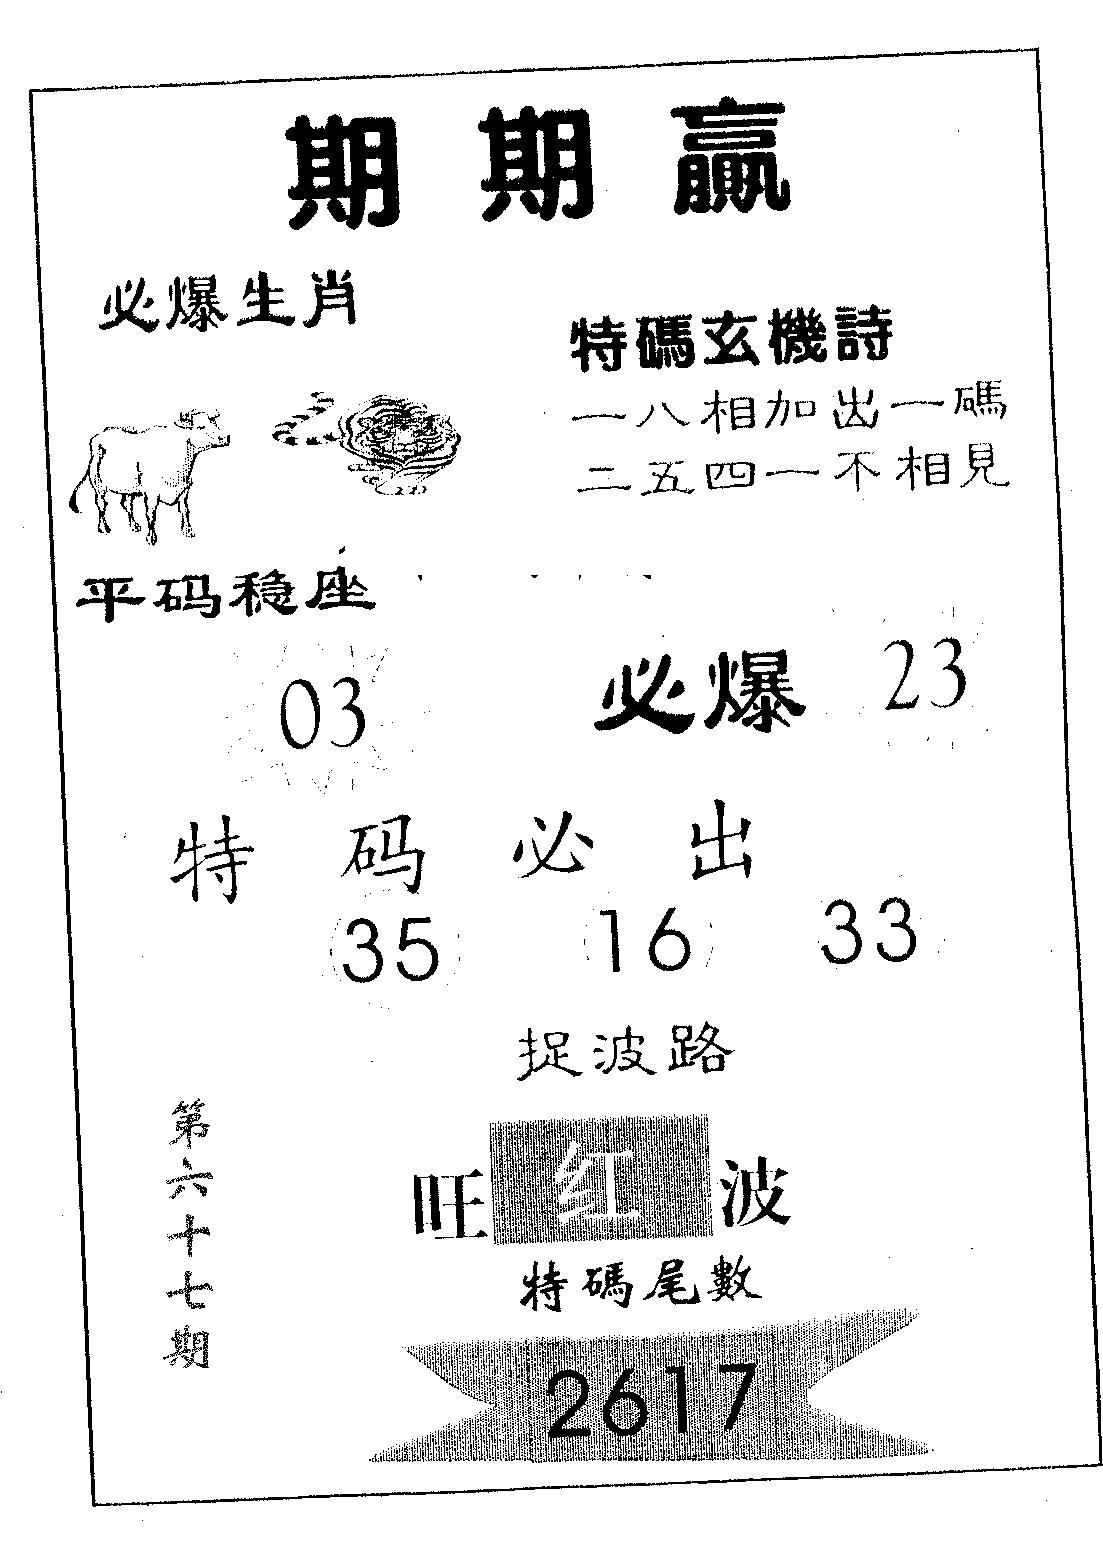 期期贏
必爆生肖
特碼玄機詩
一八相加出一碼
二五四一不相見
平码稳座
03
必爆 23
特码必出
35 16 33
捉波路
旺红波
特碼尾數
2617
第六十七期